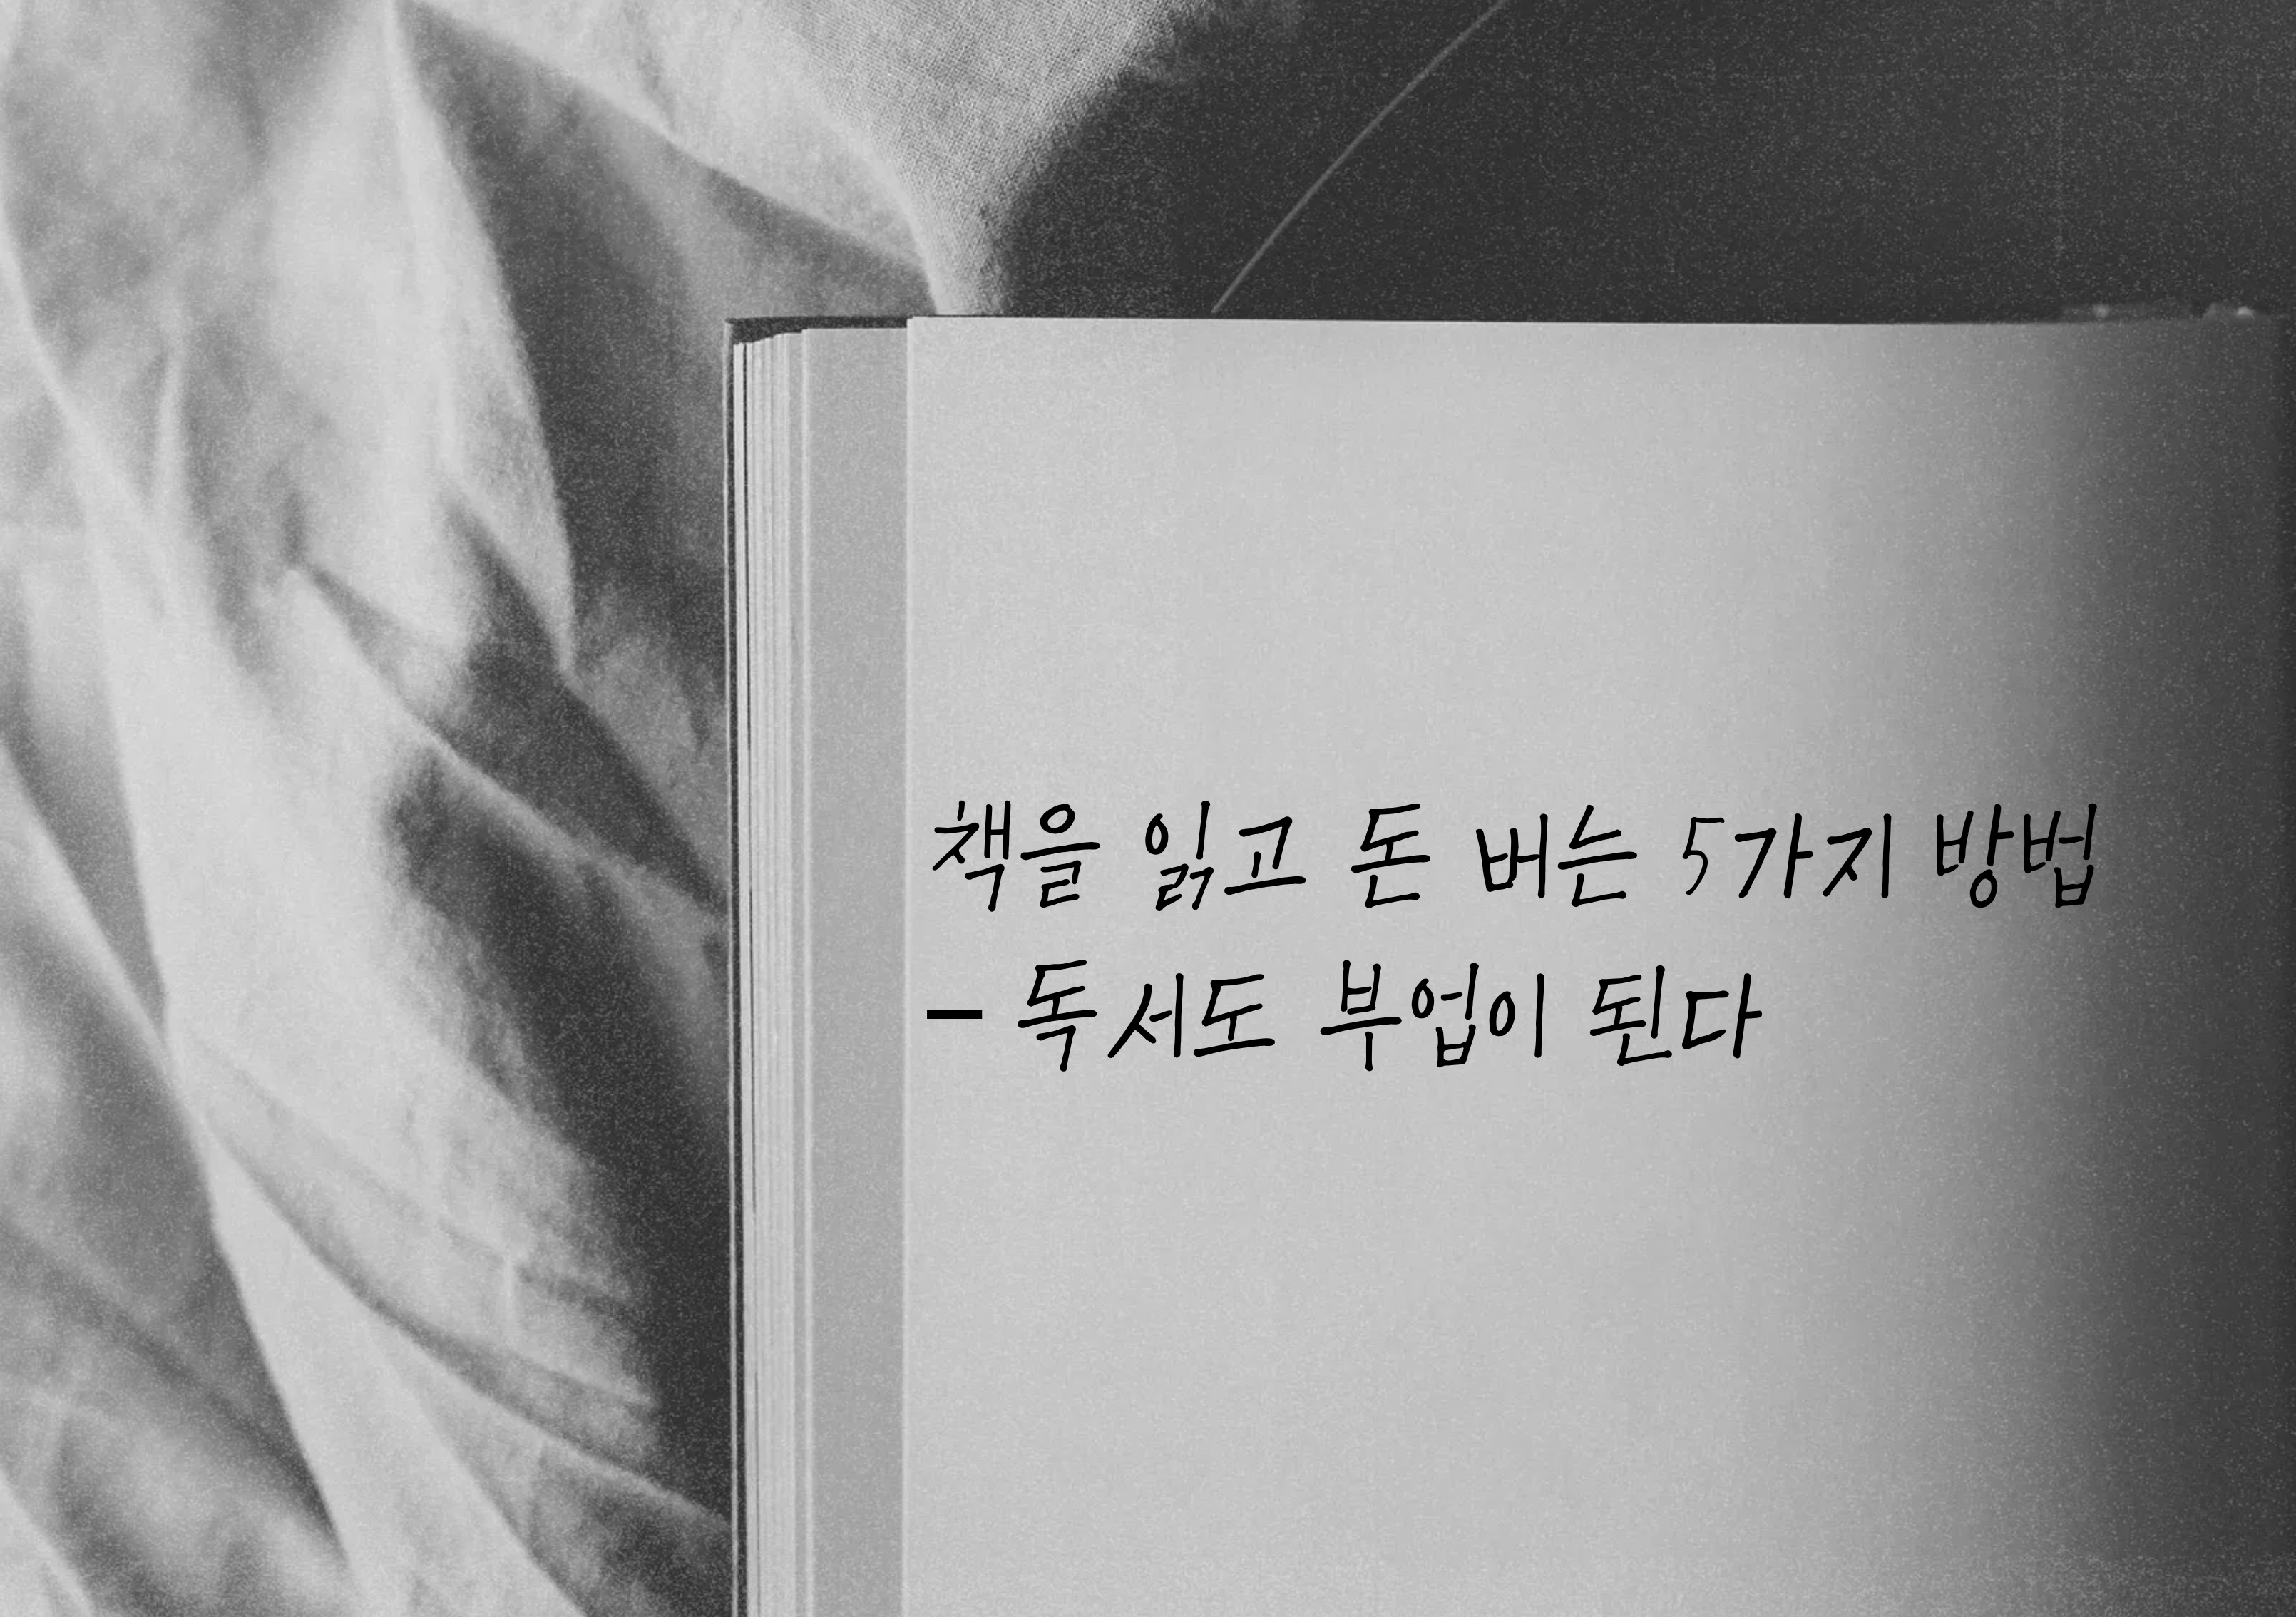 책을 읽고 돈 버는 5가지 방법
- 독서도 부업이 된다